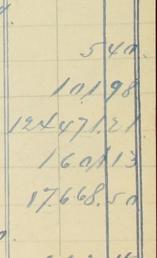 5 40
101 98
124471 21
1601 13
17.668.50